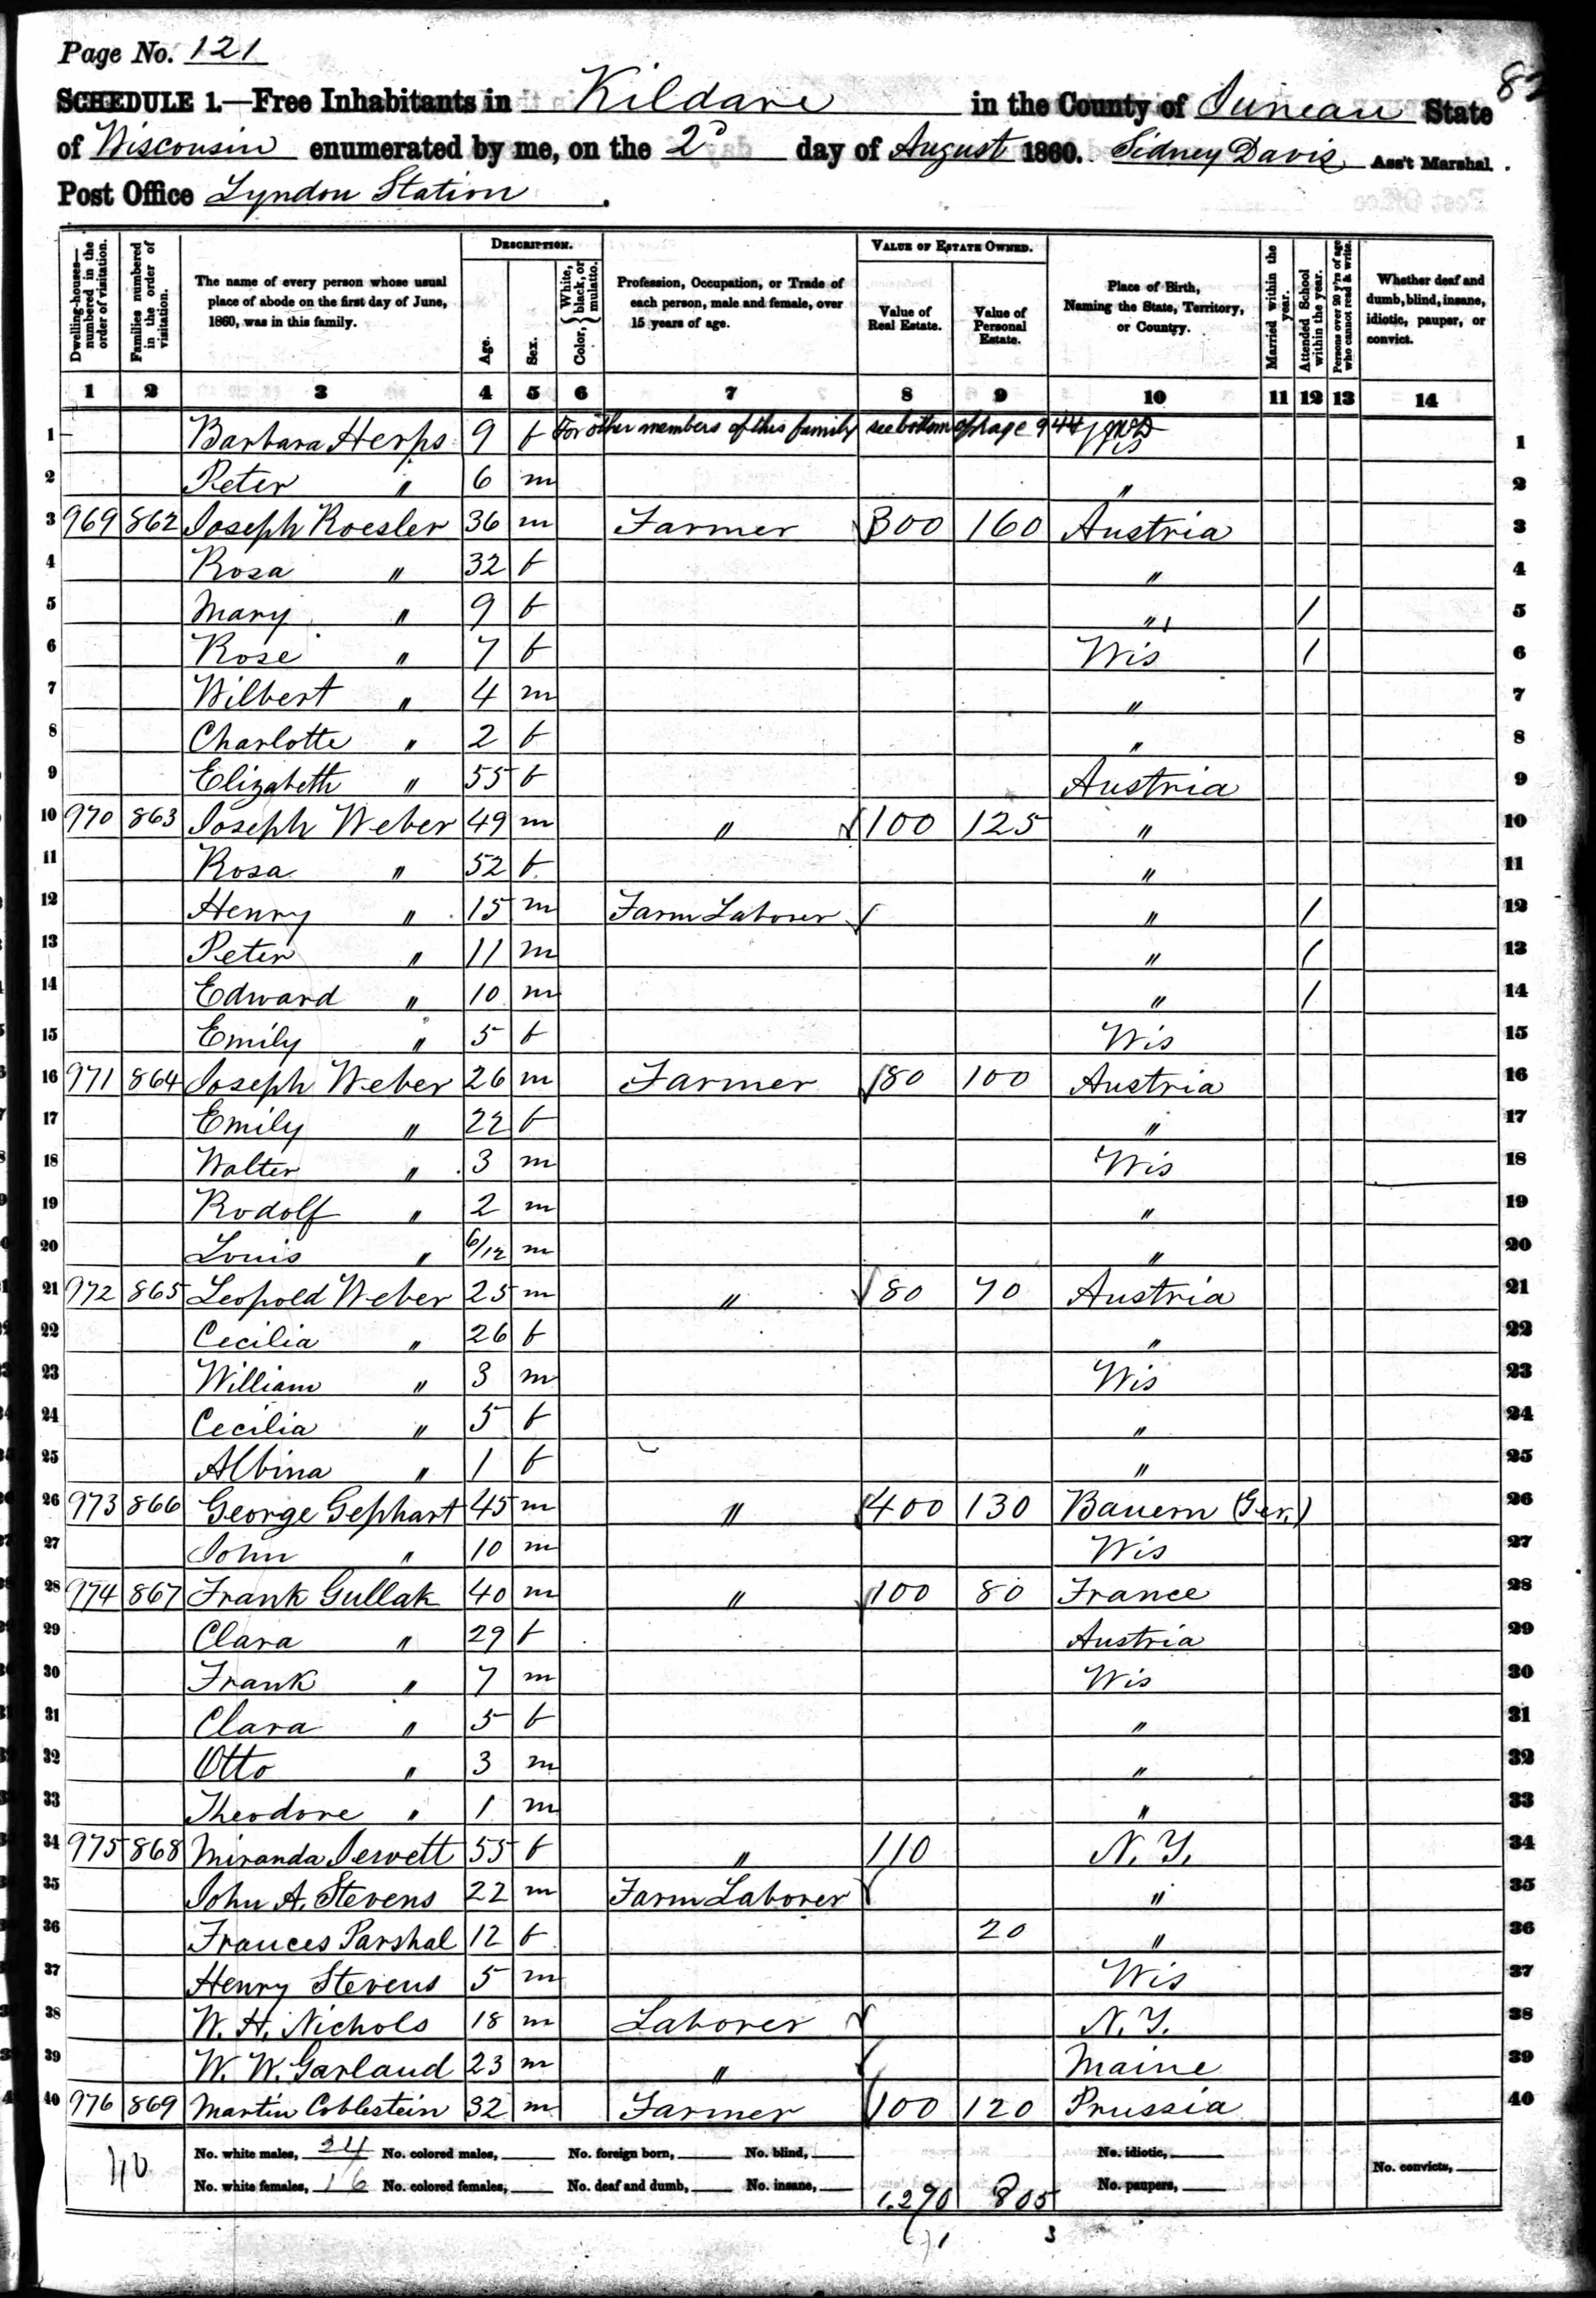 Page No. 121
SCHEDULE 1.—Free Inhabitants in Kildare in the County of Juneau State
of Wisconsin enumerated by me, on the 2d day of August 1860. Sidney Davis Ass't Marshal.
Post Office Lyndon Station.
Dwelling-houses—numbered in the order of visitation. Families numbered in the order of visitation. The name of every person whose usual place of abode on the first day of June, 1860, was in this family. DESCRIPTION. Age. Sex. Color, { White, black, or mulatto. Profession, Occupation, or Trade of each person, male and female, over 15 years of age. VALUE OF ESTATE OWNED. Value of Real Estate. Value of Personal Estate. Place of Birth, Naming the State, Territory, or Country. Married within the year. Attended School within the year. Persons over 20 y'rs of age who cannot read & write. Whether deaf and dumb, blind, insane, idiotic, pauper, or convict.
1 2 3 4 5 6 7 8 9 10 11 12 13 14
1 Barbara Herps 9 f For other members of this family see bottom of page 944 Wis 1
2 Peter " 6 m " 2
3 969 862 Joseph Roesler 36 m Farmer 300 160 Austria 3
4 Rosa " 32 f " 4
5 Mary " 9 f " / 5
6 Rose " 7 f Wis / 6
7 Wilbert " 4 m " 7
8 Charlotte " 2 f " 8
9 Elizabeth " 55 f Austria 9
10 970 863 Joseph Weber 49 m " 100 125 " 10
11 Rosa " 52 f " 11
12 Henry " 15 m Farm Laborer " / 12
13 Peter " 11 m " / 13
14 Edward " 10 m " / 14
15 Emily " 5 f Wis 15
16 971 864 Joseph Weber 26 m Farmer 80 100 Austria 16
17 Emily " 22 f " 17
18 Walter " 3 m Wis 18
19 Rodolf " 2 m " 19
20 Louis " 6/12 m " 20
21 972 865 Leopold Weber 25 m " 80 70 Austria 21
22 Cecilia " 26 f " 22
23 William " 3 m Wis 23
24 Cecilia " 5 f " 24
25 Albina " 1 f " 25
26 973 866 George Gephart 45 m " 400 130 Bauern (Ger.) 26
27 John " 10 m Wis 27
28 974 867 Frank Gullak 40 m " 100 80 France 28
29 Clara " 29 f Austria 29
30 Frank " 7 m Wis 30
31 Clara " 5 f " 31
32 Otto " 3 m " 32
33 Theodore " 1 m " 33
34 975 868 Miranda Jewett 55 f " 110 N. Y. 34
35 John A. Stevens 22 m Farm Laborer " 35
36 Frances Parshal 12 f 20 " 36
37 Henry Stevens 5 m Wis 37
38 W. H. Nichols 18 m Laborer N. Y. 38
39 W. W. Garland 23 m " Maine 39
40 976 869 Martin Coblestein 32 m Farmer 100 120 Prussia 40
40 No. white males, 24 No. colored males, No. foreign born, No. blind, No. idiotic,
No. white females, 16 No. colored females, No. deaf and dumb, No. insane, 1,270 805 No. paupers, No. convicts,